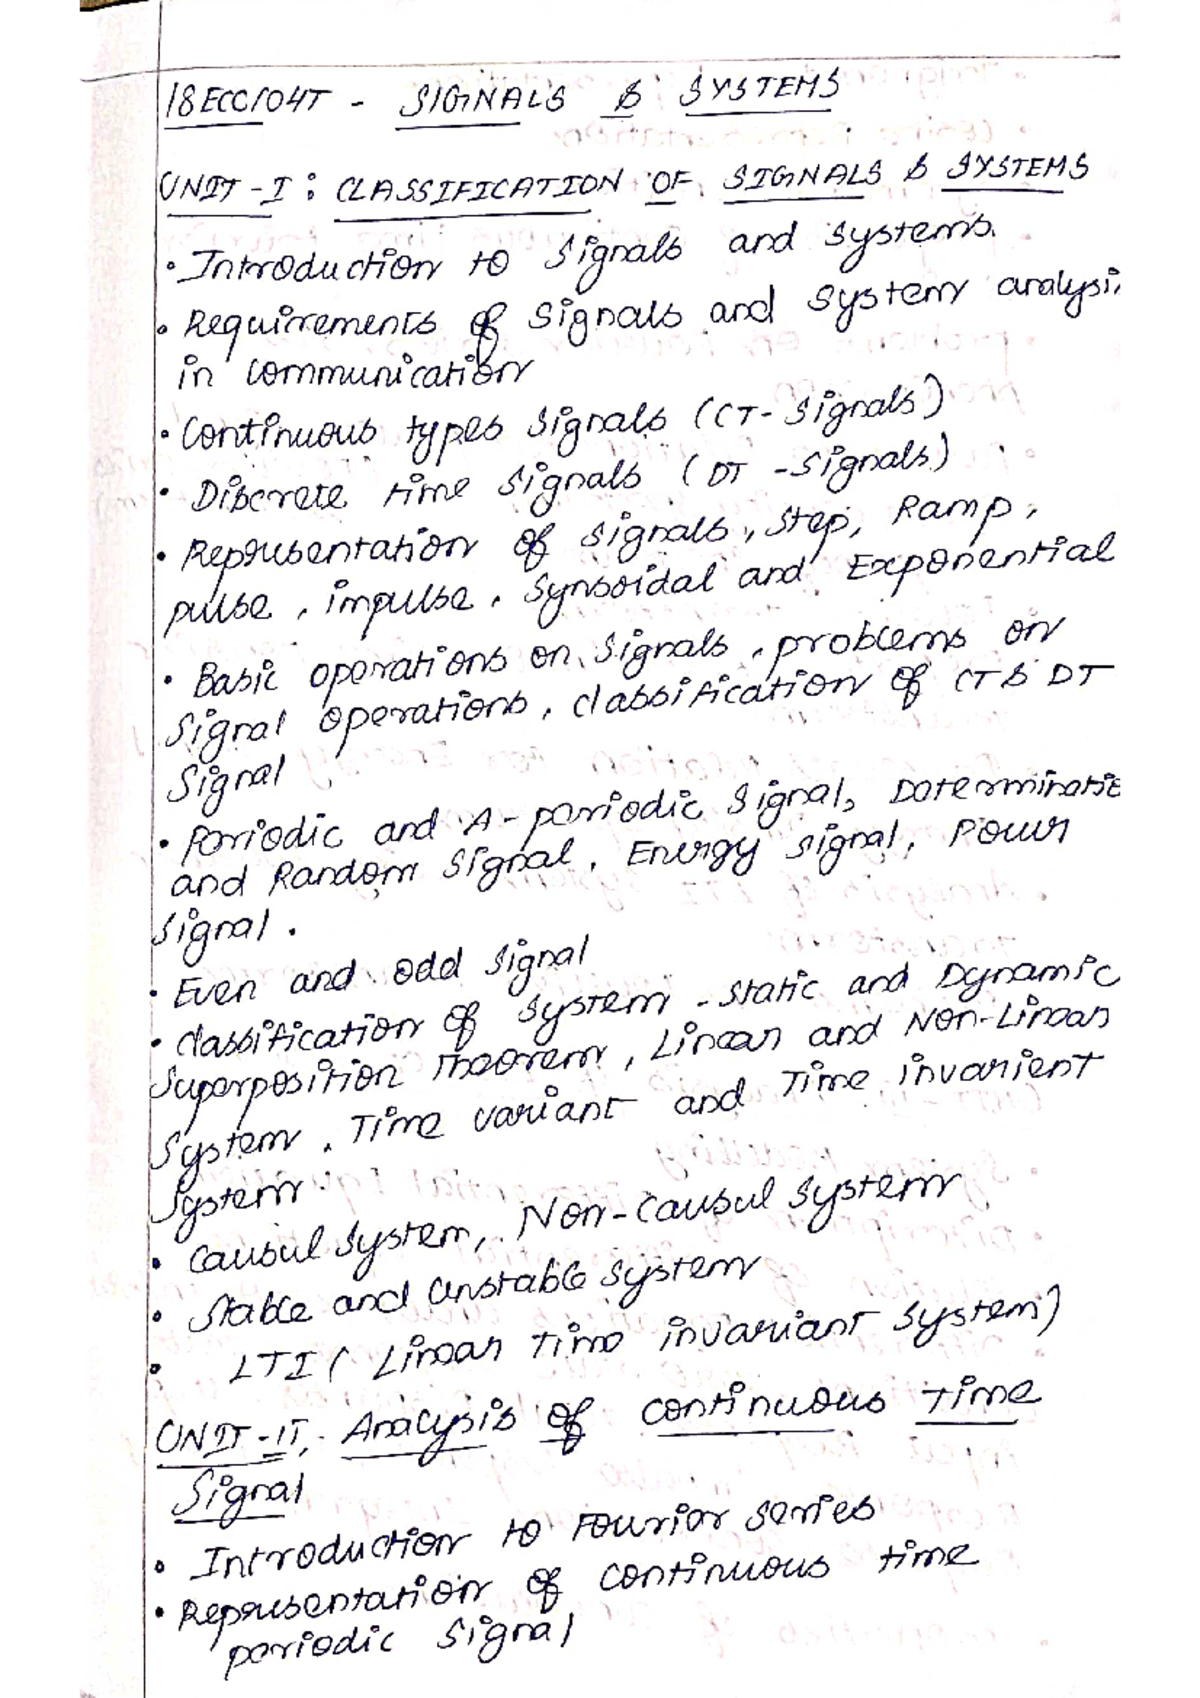 18ECC104T - SIGNALS & SYSTEMS
UNIT-I : CLASSIFICATION OF SIGNALS & SYSTEMS
• Introduction to Signals and Systems.
• Requirements of Signals and System analysi
in communication
• Continuous types Signals (CT-Signals)
• Discrete time Signals (DT-Signals)
• Representation of Signals, Step, Ramp,
pulse, impulse, Synsoidal and Exponential
• Basic operations on Signals, problems on
Signal operations, classification of CT & DT
Signal
• Periodic and A-periodic Signal, Determinatic
and Random Signal, Energy signal, Power
Signal.
• Even and odd Signal
• classification of System - Static and Dynamic
Superposition Theorem, Linear and Non-Linear
System, Time variant and Time invarient
System
• Causul System, Non-Causul System
• Stable and Unstable System
• LTI ( Linear Time invariant System)
UNIT-II, Analysis of Continuous Time
Signal
• Introduction to Fourier Series
• Representation of Continuous time
periodic Signal